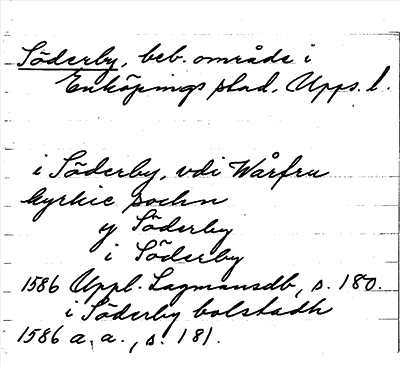 Söderby, beb. område i
Enköpings stad, Upps. l.
i Söderby, vdi Wårfru
kyrkie sochn
y Söderby
i Söderby
1586 Uppl. Lagmansdb, s. 180.
i Söderby bolstadh
1586 a. a., s. 181.